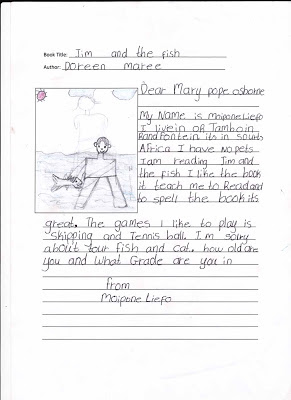 Book Title: Jim and the fish
Author: Doreen maree
Dear Mary pope osborne
My Name is Moipone Liefo
I live in OR Tamboin
Randfontein its in south
Africa I have No pets
I am reading Jim and
the fish I like the book
it teach me to Read and
to spell the book its
great. The games I like to play is
skipping and Tennis ball. I'm sorry
about your fish and cat. how old are
you and What Grade are you in
from
Moipone Liefo